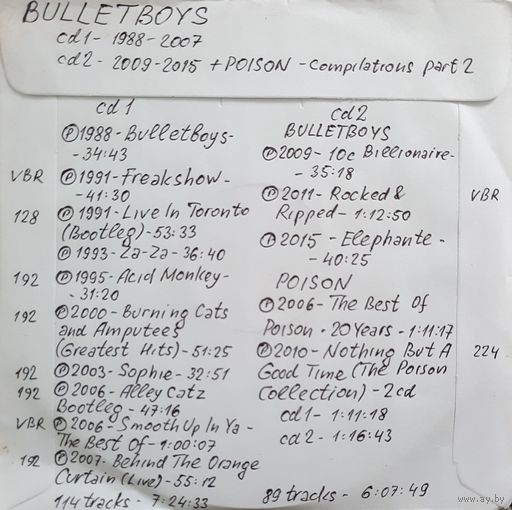 BULLETBOYS
cd1 - 1988-2007
cd2 - 2009-2015 + POISON - compilations part 2
cd1
Ⓟ1988 - BulletBoys -
- 34:43
VBR Ⓟ1991 - Freakshow -
- 41:30
128 Ⓟ1991 - Live In Toronto
(Bootleg) - 53:33
Ⓟ1993 - Za-Za - 36:40
192 Ⓟ1995 - Acid Monkey -
- 31:20
192 Ⓟ2000 - Burning Cats
and Amputees
(Greatest Hits) - 51:25
192 Ⓟ2003 - Sophie - 32:51
192 Ⓟ2006 - Alley Catz
Bootleg - 47:16
VBR Ⓟ2006 - Smooth Up In Ya -
The Best Of - 1:00:07
192 Ⓟ2007 - Behind The Orange
Curtain (Live) - 55:12
114 tracks - 7:24:33
cd2
BULLETBOYS
Ⓟ2009 - 10c Billionaire -
- 35:18
Ⓟ2011 - Rocked & VBR
Ripped - 1:12:50
Ⓟ2015 - Elephante -
- 40:25
POISON
Ⓟ2006 - The Best Of
Poison - 20 Years - 1:11:17
Ⓟ2010 - Nothing But A 224
Good Time (The Poison
Collection) - 2cd
cd1 - 1:11:18
cd2 - 1:16:43
89 tracks - 6:07:49
www.ay.by